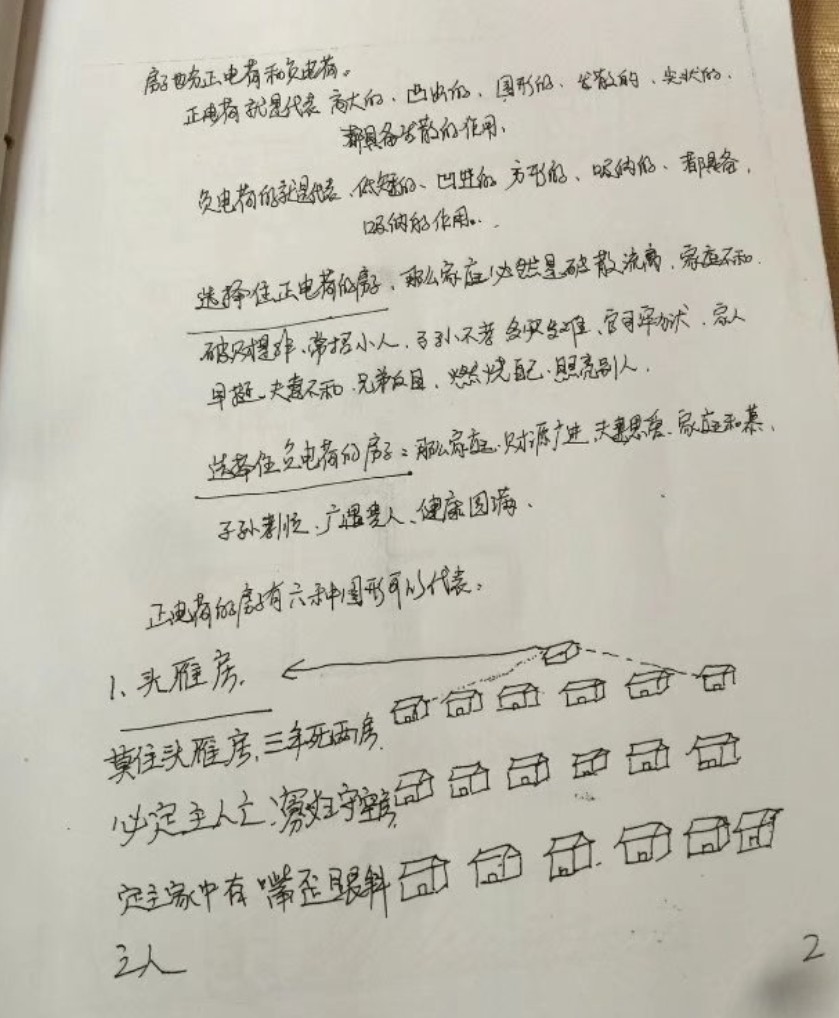 房子也分正电荷和负电荷。
正电荷就是代表高大的、凸出的、圆形的、发散的、尖状的、
都具备发散的作用、
负电荷的就是代表、低矮的、凹进的、方形的、吸纳的、都具备、
吸纳的作用。
选择住正电荷的房子，那么家庭必然是破散流离、家庭不和、
破财、常招小人、子孙不孝、官司牢狱、家人
早逝、夫妻不和、兄弟反目、燃烧自己、照亮别人、
选择住负电荷的房子：那么家庭、财源广进、夫妻恩爱、家庭和慕、
子孙孝顺、广遇贵人、健康圆满、
正电荷的房子有六种图形可以代表：
1、头雁房、
莫住头雁房、三年死两房、
必定主人亡、寡妇守空房、
定主家中有嘴歪眼斜
之人
2